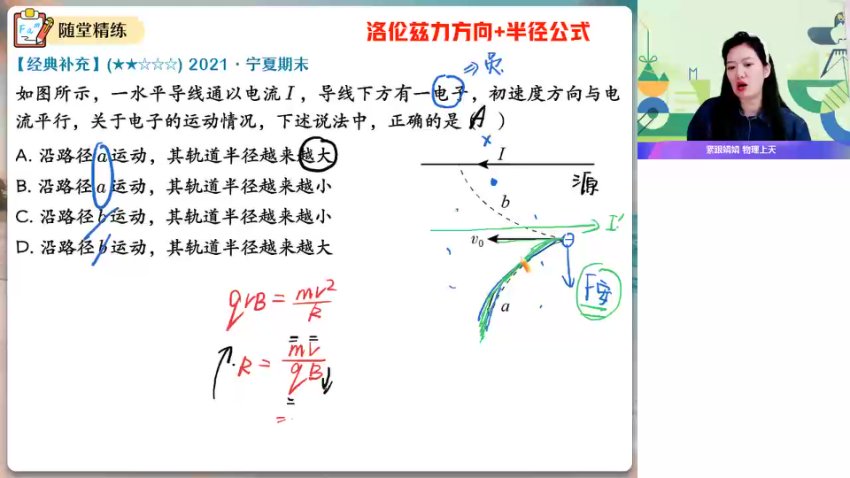 随堂精练
洛伦兹力方向+半径公式
【经典补充】(★★☆☆☆) 2021·宁夏期末
⇒负
如图所示，一水平导线通以电流 I，导线下方有一电子，初速度方向与电
流平行，关于电子的运动情况，下述说法中，正确的是（A）
A. 沿路径 a 运动，其轨道半径越来越大
B. 沿路径 a 运动，其轨道半径越来越小
C. 沿路径 b 运动，其轨道半径越来越小
D. 沿路径 b 运动，其轨道半径越来越大
I
源
b
I'
v₀
F安
a
qvB = mv²/R
R = mv/qB
=
紧跟娟娟 物理上天